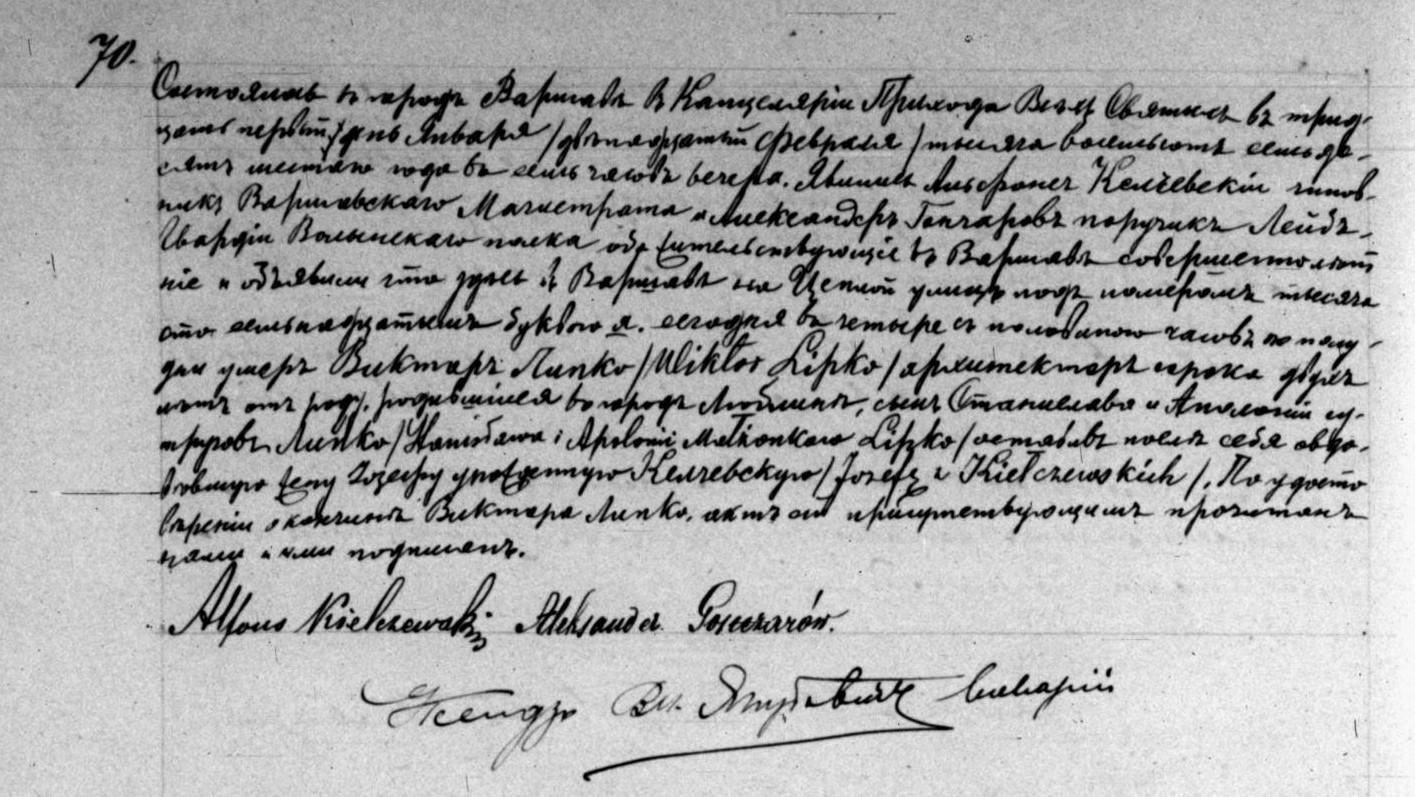 70.
Состоялось въ городѣ Варшавѣ въ Канцеляріи Прихода Всѣхъ Святыхъ въ трид-
цать первый день Января /двѣнадцатый Февраля/ тысяча восемьсотъ семьде-
сятъ шестаго года въ семь часовъ вечера. Явились Альфонсъ Келчевскій чинов-
никъ Варшавскаго Магистрата и Александръ Гончаровъ поручикъ Лейбъ-
Гвардіи Волынскаго полка оба жительствующіе въ Варшавѣ совершеннолѣт
ніе и объявили что здѣсь въ Варшавѣ на Цеплой улицѣ подъ номеромъ тысяча
сто семьнадцатымъ буквою я. сегодня въ четыре съ половиною часовъ по полу-
дни умеръ Викторъ Липко /Wiktor Lipko/ архитекторъ сорока двухъ
лѣтъ отъ роду, родившійся въ городѣ Люблинѣ, сынъ Станислава и Аполоніи су-
пруговъ Липко /Stanisława i Apolonii Małżonków Lipko/ оставивъ послѣ себя овдо-
вѣвшую жену Іозефу урожденную Келчевскую /Józefę z Kiełczewskich/. По удосто
вѣреніи о кончинѣ Виктора Липко, актъ сей присутствующимъ прочитанъ
нами и ими подписанъ.
Alfons Kiełczewski Aleksander Gonczarów.
Ксендзъ Викарій